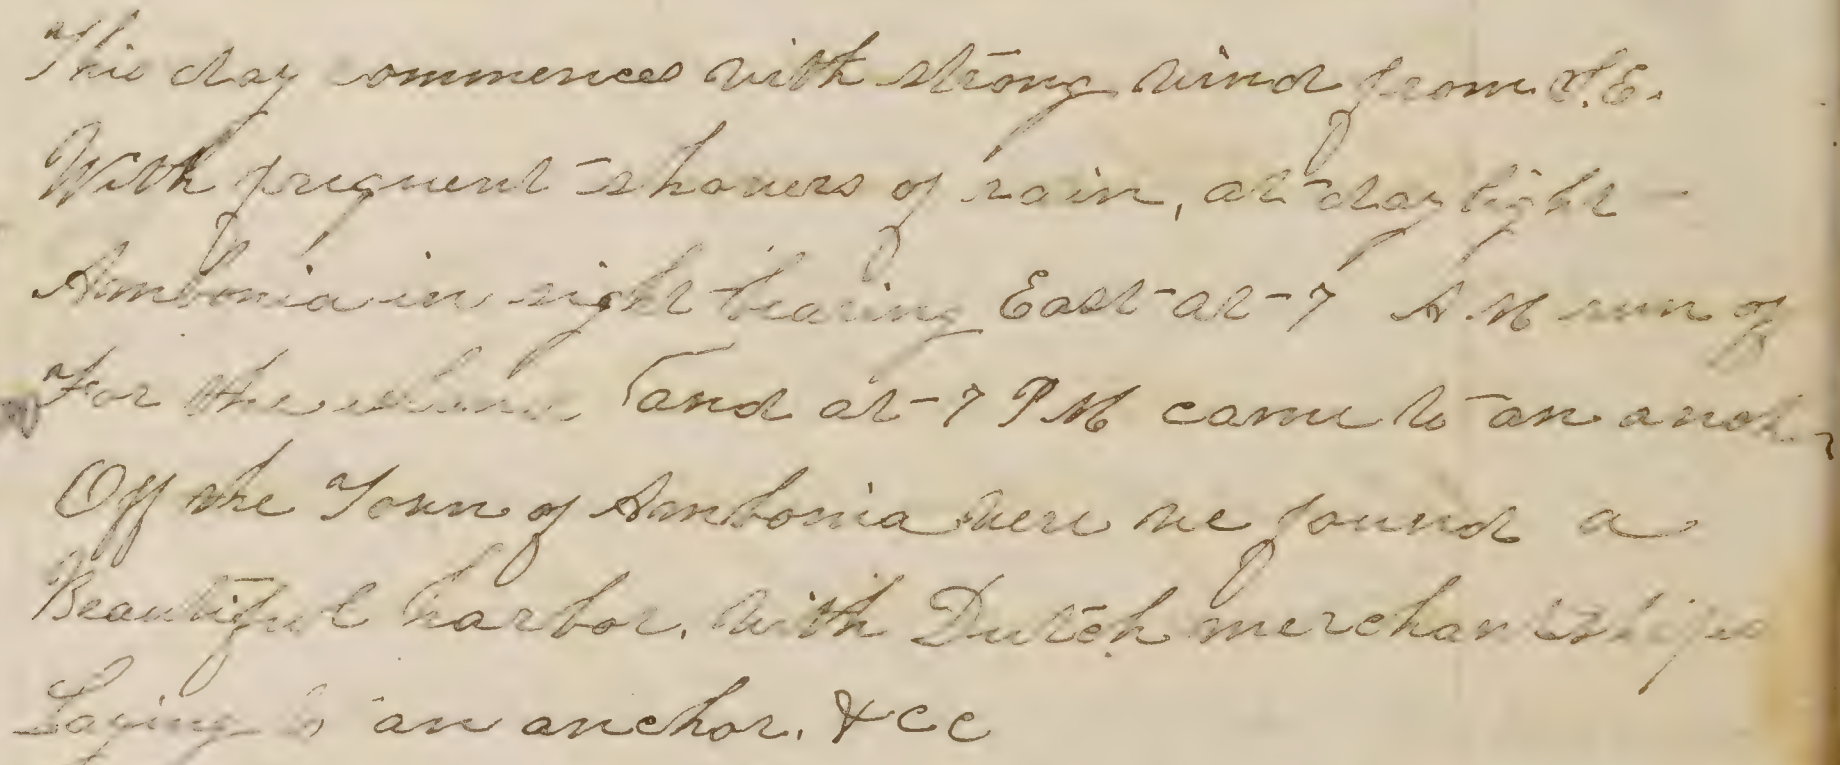 This day commences with strong wind from S.E.
With frequent showers of rain, at daylight
Ambonia in sight bearing East at 7 A M run of
For the island and at 7 P M came to an anch
Off the Town of Ambonia were we found a
Beautiful harbor. With Dutch merchant ships
Laying to an anchor. &cc